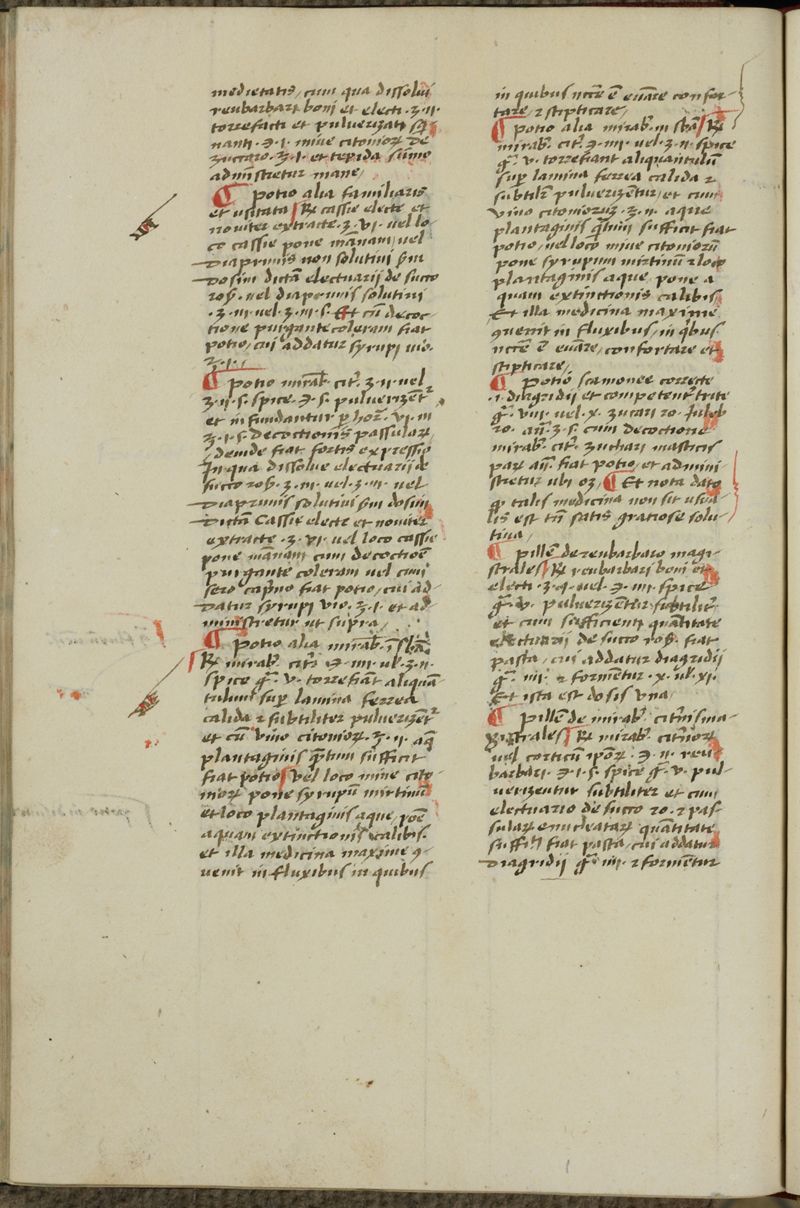 medietatis, cum qua dissolui
reubarbari boni et electi · ʒ · ij
torrefacti et puluerizati
nanti · ℈ · j · mine citonioꝝ de
zuccaro · ʒ · j · et tepida sumo
administretur mane,
¶ Potio alia familiaris
et usitata ℞ cassie electe et
nouiter extracte · ʒ · vj · uel lo-
co cassie pone mãnam, uel
diaprunis non solutiui ẜm
dosim dictã electuarij de succo
roẜ · uel diaprunis solutiui
· ʒ · iij uel · ʒ · iij · s · Et cũ decoc-
tione purgante coleram fiat
potio, cui addatur syrupi uio.
ʒ · j ·
¶ Potio mirab' citʳ · ʒ · ij uel
ʒ · ij · s · spice · ℈ · s · puluerizẽtʳ
et infundantur ꝑ horʳ · vj · in
ʒ · j · s · decoctionis passulaꝝ
, deinde fiat fortis expressio
In qua dissolue electuarij de
succo roẜ · ʒ · iij · uel · ʒ · iij · uel
diaprunis solutiui ẜm dosim
dictã Cassie electe et nouiter
extracte · ʒ · vj · uel loco cassie
pone mãnam cum decoctiõe
purgante coleram uel cum
sero caprino fiat potio, cui ad-
datur syrupi uio · ʒ · j · et ad
ministretur ut supra,
¶ Potio alia mirab' ĩ sbã
℞ mirab' citʳ · ℈ · iiij · ul' · ʒ · ij ·
spice gʳ · v · torrefiãnt aliquã
tulum sup̱ lamina ferrea
calida ⁊ subtiliter puluerizẽtʳ
et cũ vino citonioꝝ · ʒ · ij · aq̃
plantaginis q̃tum sufficit
fiat potio Vel loco mine cito
nioꝝ pone syrupũ mirtinũ
et loco plantaginis aque, põe
aquam extinctionis calibis.
et illa medicina maxime ꝯ-
uenit in fluxibus in quibus
in quibus nccẽ ẽ euãre confor-
tare, ⁊ stipticare,
¶ Potio alia mirab' in sbã ℞
mirab' citʳ · ℈ · iiij · uel · ʒ · ij · spice
gʳ · v · torrefiant aliquantulũ
sup̱ lamina ferrea calida ⁊
subtilʳ puluerizẽntur, et cum
vino citonioꝝ · ʒ · ij · aque
plantaginis q̃tum sufficit fiat
potio, uel loco mine citonioꝝ
pone syrupum mirtinũ ⁊ loco
plantaginis aque, pone a
quam extinctionis calibis
Et illa medicina maxime
ꝯuenit in fluxibus, in q̃bus
nccẽ ẽ euãre, confortare et
stipticare,
¶ Potio scamonee correcte
· i · diagridij et competentʳ trite
gʳ · viij uel · x · zucari ro · Juleb
ro · añ · ʒ · s · cum decoctione
mirab' citʳ · zuchari masticis
par añ · fiat potio, et admini-
stretur ubi oꝫ, ¶ Et nota dato
ꝙ talis medicina non sit usua
lis est tñ satis gratiose solu-
tiua,
¶ Pillẽ de reubarbaro magi-
strales ℞ reubarbari boni et
electi · ʒ · ij · uel · ℈ · iiij · spice
gʳ · v · puluerizẽtur subtilitʳ
et cum sufficienti quãtitate
electuarij de succo roẜ · fiat
pasta, cui addatur diagridij
gʳ · iiij · ⁊ formẽtur · x · ul' xj ·
Et ista est dosis vna,
¶ Pillẽ de mirab' citʳinis ma-
gistrales ℞ mirab' citʳinoꝝ
uel corticũ ipõꝝ · ℈ · ij · reu-
barbari · ℈ · j · s · spice gʳ · v · pul-
uerizentur subtiliter et cum
electuario de succo ro · ⁊ pas-
sulaꝝ enucleataꝝ quãtitate
suffitī fiat pasta, cui addatur
diagridij gʳ · iiij · ⁊ formẽtur